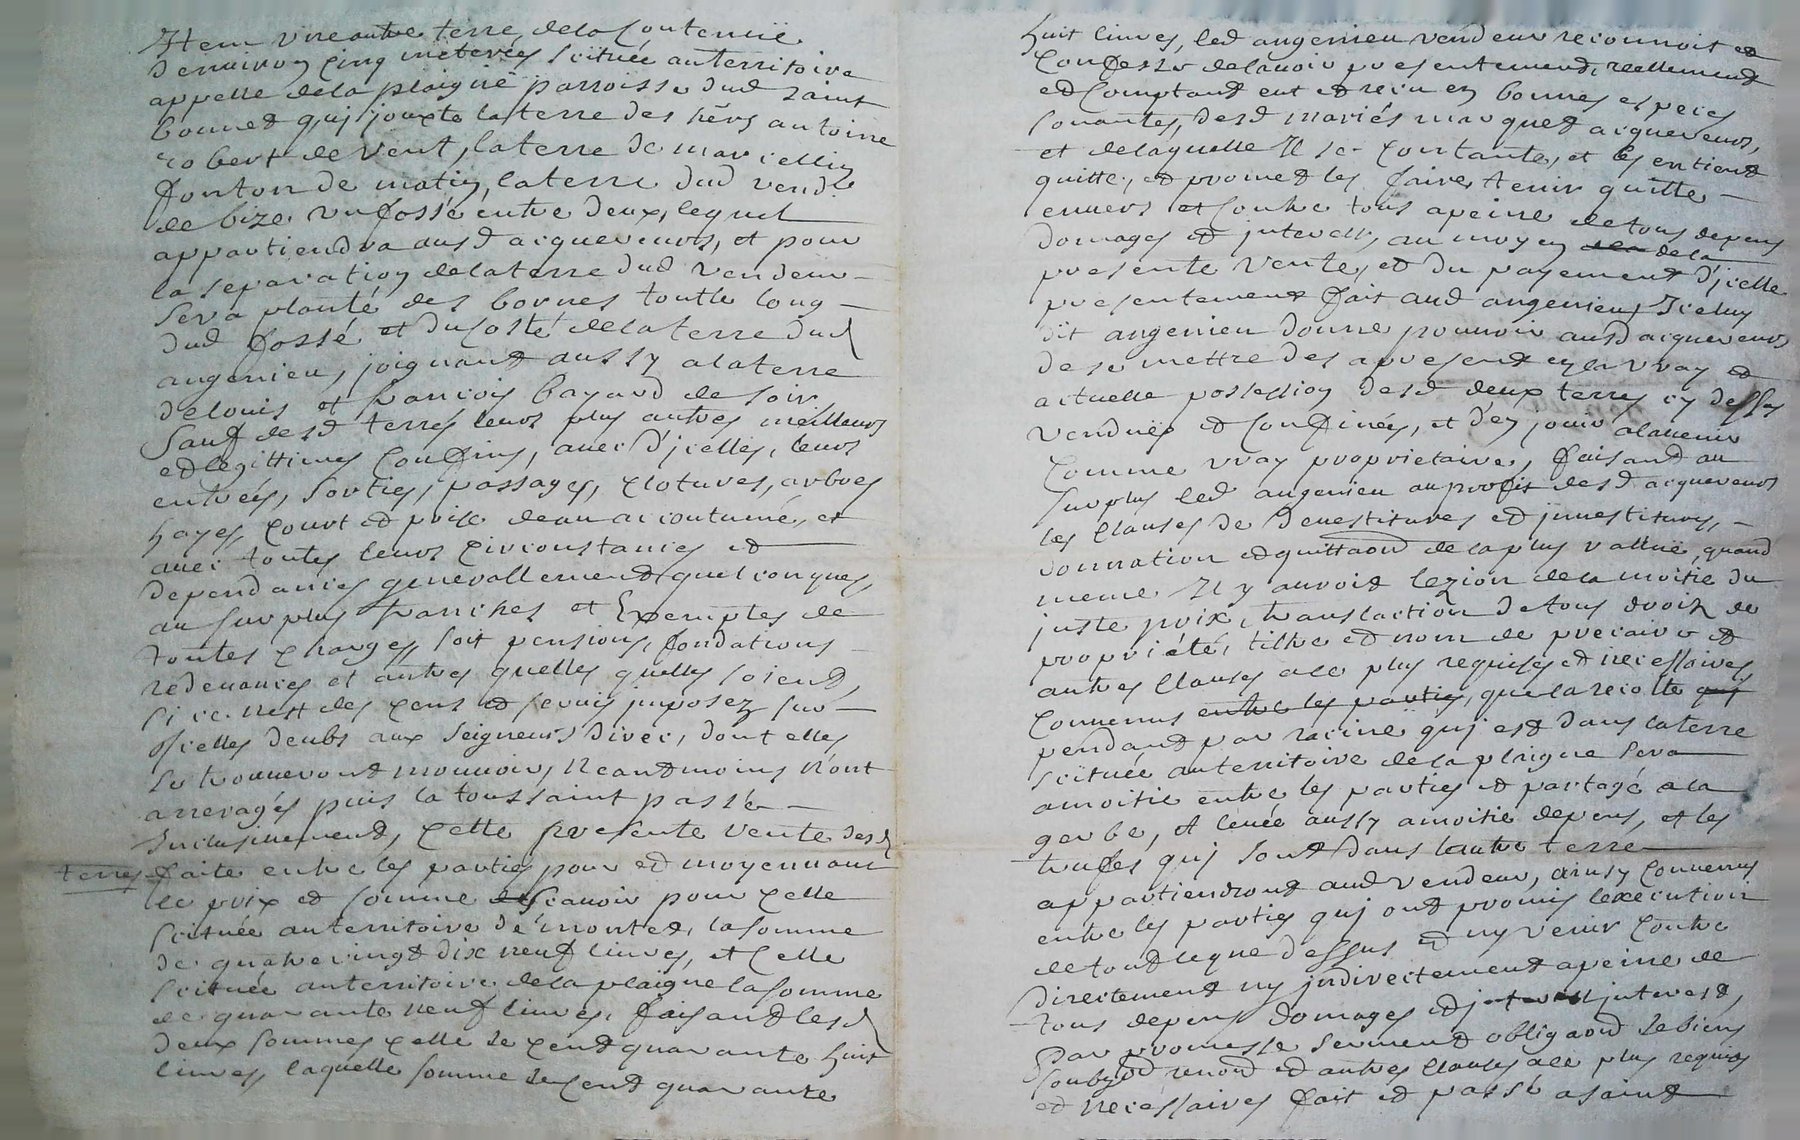 Item une autre terre, dela Contenüe
denuiron cinq meterées scituée auterritoire
appellé dela plaigne parroisse dud Saint
bonnet quj jouxte laterre des hers antoine
robert de vent, laterre de marcellin
fonton de matin, laterre dud vendr
de bize un fossé entre deux, lequel
appartiendra ausd acquereurs, et pour
la separation delaterre dud vendeur
sera planté des bornes toutle long
dud fossé et du costé delaterre dud
angenieu, joignant aussy alaterre
delouis et francois bayard de soir
sauf desd terres leurs plus autres meilleurs
et legittimes Confins, auec d'jcelles, leurs
entrées, sorties, passages, clotures, arbres
hayes, court et prise deau accoutumé, et
auec toutes leurs circonstances et
dependances generallement quelconques,
au surplus franches et Exemptes de
toutes charges, soit pensions, fondations
redeuances et autres quelles quelles soient,
si ce nest des cens et seruis jmposez sur
jcelles deubs aux seigneurs divec, dont elles
se trouueront mouuoir, Neantmoins N'ont
arreragés puis la toussaint passée
Inclusiuement, Cette presente vente desd
terres faite entre les parties pour et moyennant
le prix et somme scauoir pour celle
scituée auterritoire de montet, la somme
de quatre vingt dix neuf liures, et Celle
scituée auterritoire dela plaigne la somme
de quarante neuf liures, faisant lesd
deux sommes celle de cent quarante huit
liures, laquelle somme de cent quarante
huit liures, led angenieu vendeur reconnoit et
Confesse delauoir presentement, reellement
et Comptant eut et recu en bonnes especes
sonantes, desd mariés marquet acquereurs,
et delaquelle Il se contante, et les entient
quitte, et promet les faire tenir quitte
enuers et Contre tous apeine de tous depens
domages et jnterets, au moyen dela
presente vente, et du payement d'jcelle
presentement fait aud angenieu, Iceluy
dit angenieu donne pouuoir ausd acquereurs
de se mettre des apresent en la vray et
actuelle possession desd deux terres cy dessus
venduës et Confinées, et d'en jouir alauenir
Comme vray proprietaire, faisant au
surplus led angenieu au profit desd acquereurs
les Clauses de deuestitures et jnuestitures,
donnation et quittaon dela plus vallüe, quand
meme Il y auroit lezion dela moitie du
juste prix, translaction de tous droits de
propriété, titre et nom de precaire et
autres Clauses ace plus requises et necessaires
Conuenus entre les parties, que la recolte quj
pendant par racine quj est dans laterre
scituée auterritoire de la plaigne sera
amoitie entre les parties et partagé ala
gerbe, et leuée aussy amoitie depens, et les
trufes quj sont dans lautre terre
appartiendront aud vendeur, ainsy Conuenus
entre les parties quj ont promis lexecution
de tout le que dessus et ny venir Contre
directement ny jndirectement apeine de
tous depens domages et jnterest,
Par promesse serment obligaon de biens
soubzon renon et autres Clauses ace plus requises
et necessaires fait et passé asaint